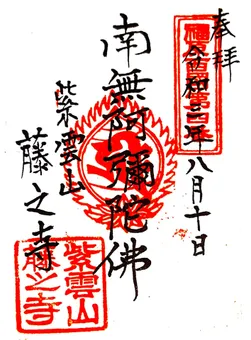 奉拝
令和三年八月十日
南無阿彌陀佛
紫雲山
藤之寺
紫雲山
藤之寺